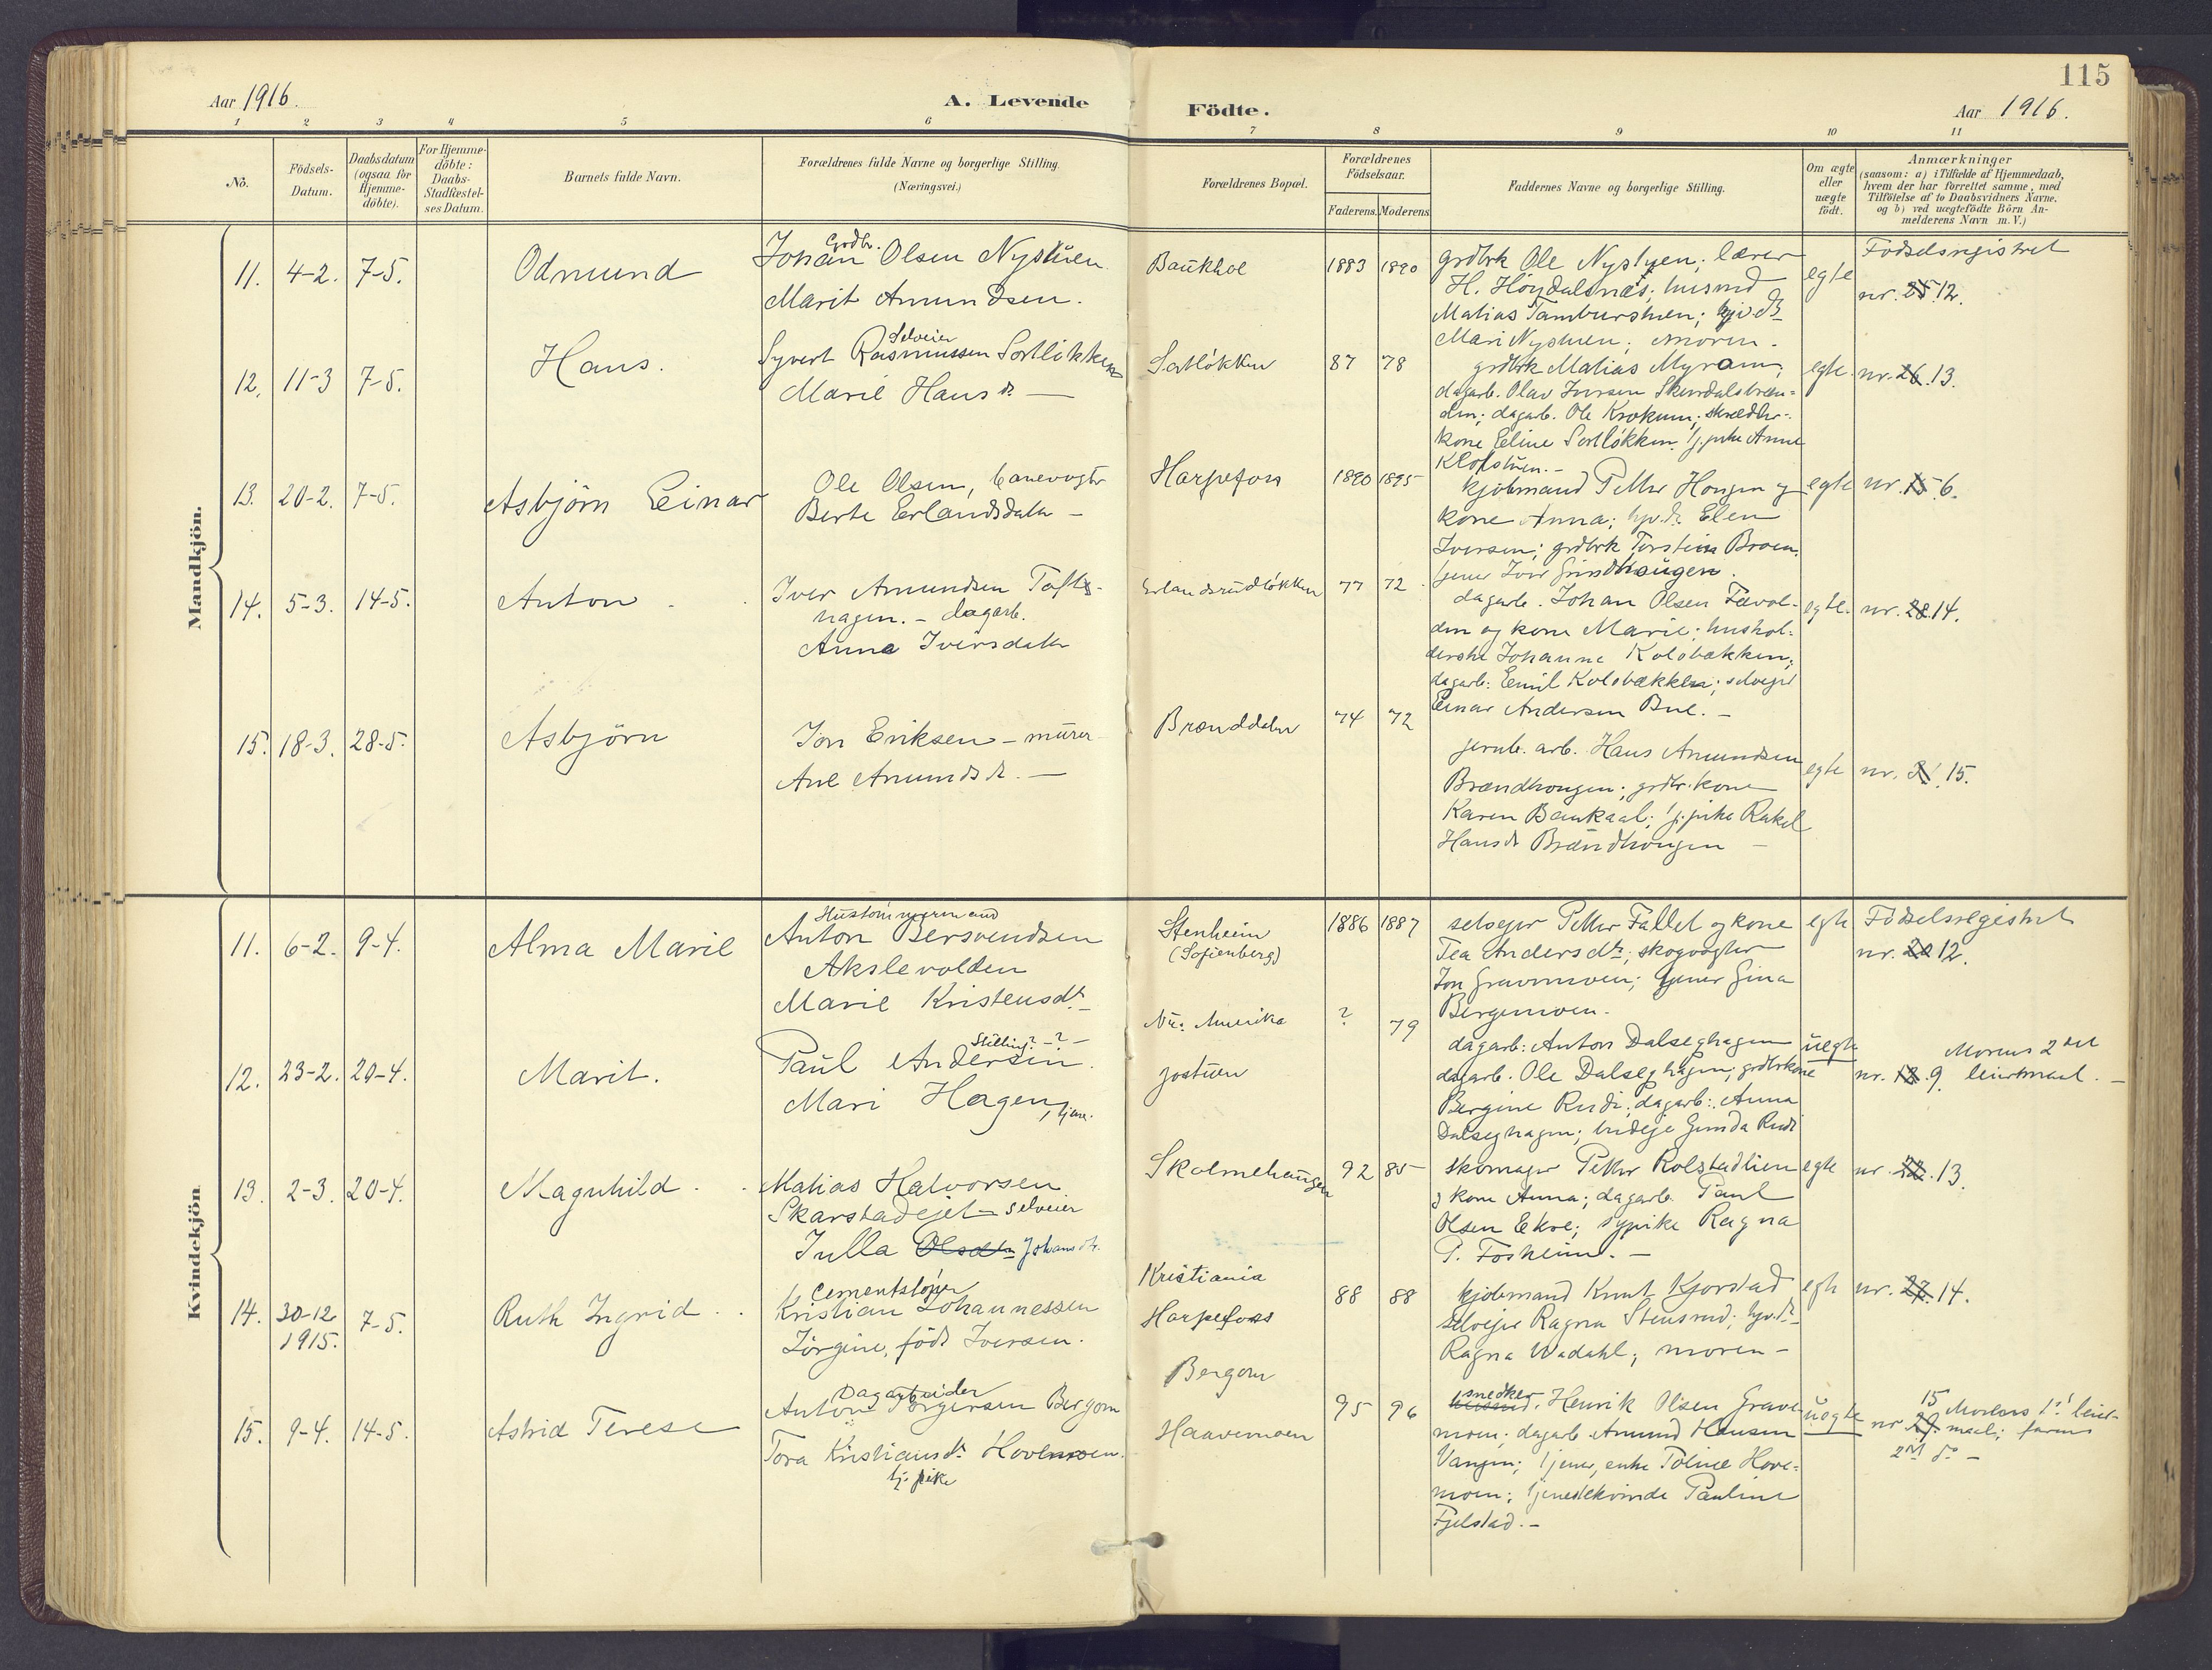 115
Aar 1916.
A. Levende Födte.
Aar 1916.
1 2 3 4 5 6 7 8 9 10 11
No.
Födsels-Datum.
Daabsdatum (ogsaa for Hjemme-döbte).
For Hjemme-döbte: Daabs-Stadfæstel-ses Datum.
Barnets fulde Navn.
Forældrenes fulde Navne og borgerlige Stilling.
(Næringsvei.)
Forældrenes Bopæl.
Forældrenes Födselsaar.
Faderens. Moderens.
Faddernes Navne og borgerlige Stilling.
Om ægte eller uægte födt.
Anmærkninger
(saasom: a) i Tilfælde af Hjemmedaab,
hvem der har forrettet samme, med
Tilföielse af to Daabsvidners Navne,
og b) ved uægtefödte Börn An-
melderens Navn m. V.)
Mandkjön.
11. 4-2. 7-5. Odmund
Grdbr.
Johan Olsen Nystuen
Marit Amundsen.
Baukhol 1883 1890
grdbrk Ole Nystuen; lærer
H. Höydalsnæs; husmd
Matias Tamburstuen;
Mari Nystuen; moren.
egte
Födselsregistret
nr. 25. 12.
12. 11-3 7-5. Haus.
Selveier
Syvert Rasmussen Sortlökken
Marie Hansd. —
Sortlökken 87 78
grdbrk Matias Myrom;
dagarb. Olav Iversen Skurdalsbræn-
den; dagarb. Ole Krokum;
kone Eline Sortlökken. tj.pike Anne
Klopstuen.-
egte. nr. 26. 13.
13. 20-2. 7-5. Asbjörn Einar
Ole Olsen, banevogter
Berte Erlandsdatter -
Harpefoss 1890 1895
kjöbmand Petter Haugen og
kone Anna; Elen
Iversen; grdbrk Torstein Broen;
tjener Iver Grindhaugen.
egte nr. 15. 6.
14. 5-3. 14-5. Anton
Iver Amundsen Tofte-
hagen. - dagarb.
Anna Iversdatter
Erlandsrudlökken 77 72
dagarb. Johan Olsen Fævol-
den og kone Marie; hushol-
derske Johanne Kolobækken;
dagarb: Emil Kolobækken; selveier
Einar Andersen Bue. -
egte. nr. 28. 14.
15. 18-3. 28-5. Asbjörn
Jon Eriksen - murer
Ane Amundsdt. -
Brænddalen 74 72
jernb. arb. Hans Amundsen
Brændhaugen; grdbr.kone
Karen Baukaal; tj.pike Rakel
Hansdt Brændhaugen -
egte nr. 15.
Kvindekjön
11. 6-2. 9-4. Alma Marie
Hustömmermand
Anton Bersvendsen
Akslevolden
Marie Kristensdt. -
Stenheim
(Sofienberg)
1886 1887
selveier Petter Fallet og kone
Tea Andersdt; skogvogter
Jon Gravemoen; tjener Gina
Bergemoen.
egte
Födselsregistret
nr. 20 12.
12. 23-2. 20-4. Marit.
Stilling? -?-
Paul Andersen.
Mari Hagen, tjen.
Nu: Amerika
Jostuen
? 79
dagarb: Anton Dalseghagen
dagarb. Ole Dalseghagen; grdbrkone
Bergine Rudi; dagarb: Anna
Dalseghagen; budeje Gunda Rudi
uegte
nr. 18. 9. Morens 2det leiermaal. -
13. 2-3. 20-4. Magnhild
Matias Halvorsen
Skarstadejet - selveier
Julla Olsdtr Johansdt.
Skolmehaugen 92 85
skomager Petter Kolstadlien
& kone Anna; dagarb. Paul
Olsen Ekre; sypike Ragna
P. Fosheim. -
egte nr. 22. 13.
14. 30-12 1915. 7-5. Ruth Ingrid
Cementstöper
Kristian Johannessen
Jörgine, födt Iversen.
Kristiania
Harpefoss
88 88
kjöbmand Knut Kjorstad
selveier Ragna Stensrud;
Ragna Wadahl; moren -
egte nr. 27. 14.
15. 9-4. 14-5. Astrid Terese
Dagarbeider
Anton Törgersen Bergom
Tora Kristiansdt. Hovemoen.
tj. pike
Bergom
Haavemoen
95 96
snedker
husmd. Henrik Olsen Grave-
moen; dagarb Amund Hansen
Vangen; tjener, enke Poline Hove-
moen; tjenestekvinde Pauline
Fjelstad. -
uegte
nr 29. 15 Morens 1ste leier-
maal; farens
2det do -